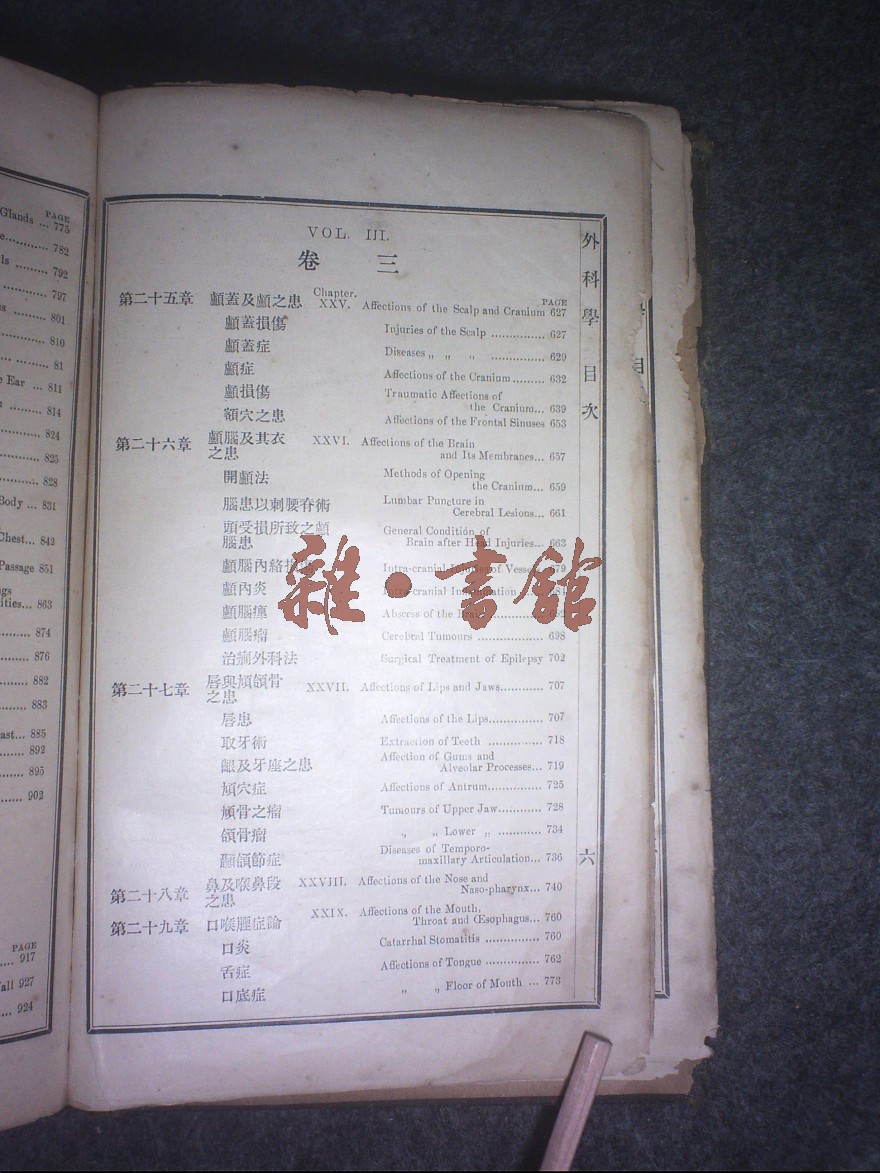 Glands ... 775
PAGE
782
792
797
801
810
81
Ear ... 811
814
824
825
828
Body ... 831
Chest... 842
Passage 851
ities... 863
874
876
882
883
885
892
895
902
PAGE
917
all 927
924
VOL. III.
卷 三
Chapter. PAGE
第二十五章 顱蓋及顱之患 XXV. Affections of the Scalp and Cranium 627
顱蓋損傷 Injuries of the Scalp ............... 627
顱蓋症 Diseases „ „ „ ............... 629
顱症 Affections of the Cranium......... 632
顱損傷 Traumatic Affections of
the Cranium... 639
額穴之患 Affections of the Frontal Sinuses 653
第二十六章 顱腦及其衣 XXVI. Affections of the Brain
之患 and Its Membranes... 657
開顱法 Methods of Opening
the Cranium... 659
腦患以刺腰脊術 Lumbar Puncture in
Cerebral Lesions... 661
頭受損所致之顱 General Condition of
腦患 Brain after Head Injuries... 663
顱腦內絡 Intra-cranial of Vessel
顱內炎 Intra-cranial
顱腦癉 Abscess of the
顱腦瘤 Cerebral Tumours ................ 698
治癇外科法 Surgical Treatment of Epilepsy 702
第二十七章 唇與頄頷骨 XXVII. Affections of Lips and Jaws............ 707
之患
唇患 Affections of the Lips............... 707
取牙術 Extraction of Teeth ............... 718
齦及牙座之患 Affection of Gums and
Alveolar Processes... 719
頄穴症 Affections of Antrum............... 725
頄骨之瘤 Tumours of Upper Jaw............ 728
頷骨瘤 „ „ Lower „ ............ 734
顳頷節症 Diseases of Temporo-
maxillary Articulation... 736
第二十八章 鼻及喉鼻段 XXVIII. Affections of the Nose and
之患 Naso-pharynx... 740
第二十九章 口喉症論 XXIX. Affections of the Mouth,
Throat and Œsophagus... 760
口炎 Catarrhal Stomatitis ............... 760
舌症 Affections of Tongue ............... 762
口底症 „ „ Floor of Mouth ... 773
外科學 目次
六
雜·書館